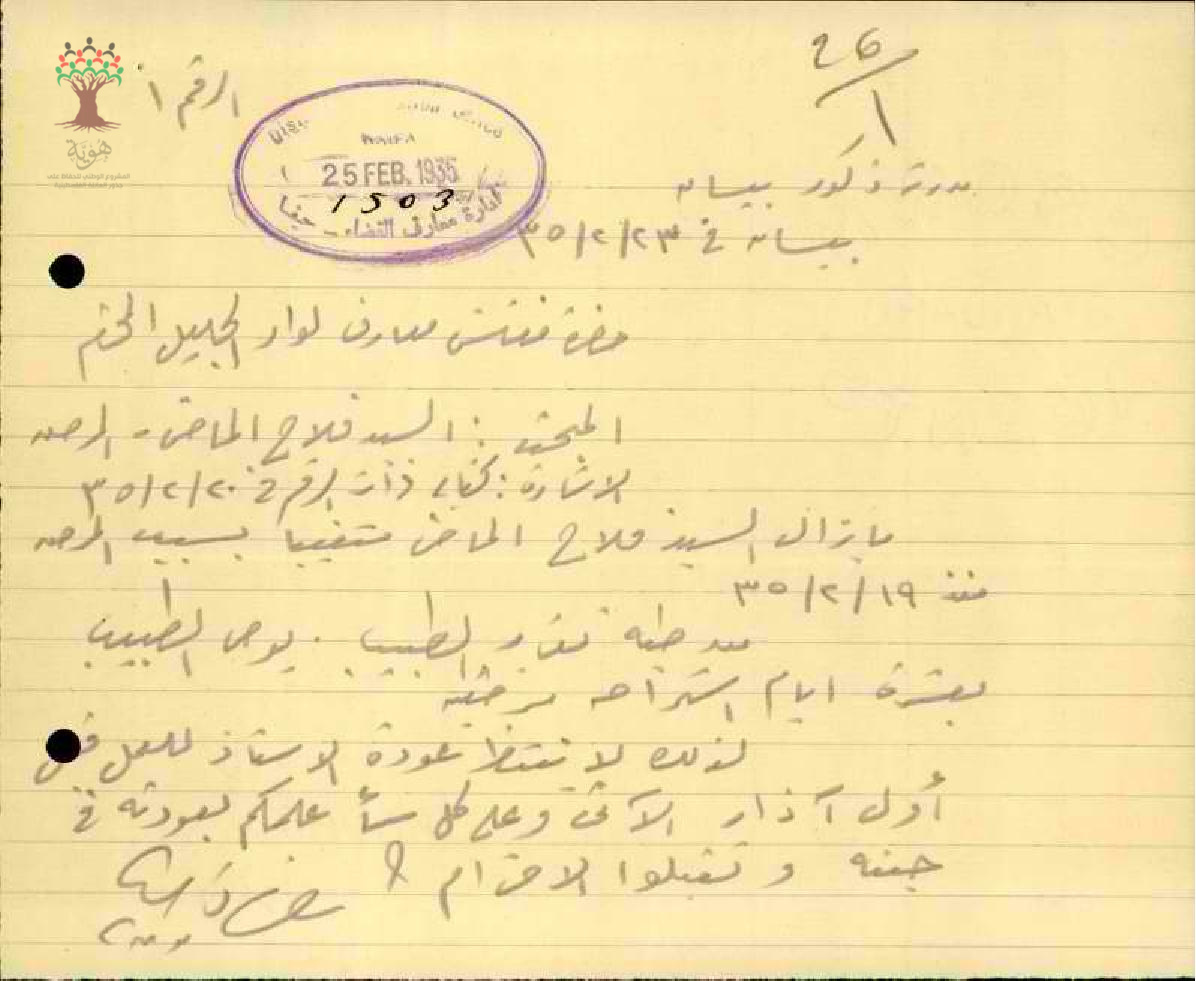 26/1
الرقم ١
HAIFA
25 FEB. 1935
1503
ادارة معارف القضاء - حيفا
مدرسة ذكور بيسان
بيسان في ٢٣/٢/٣٥
حضرة مفتش معارف لواء الجليل المحترم
المبحث : السيد فلاح الماضي - المرض
الاشارة : كتابي ذات الرقم في ٢٠/٢/٣٥
ما يزال السيد فلاح الماضي متغيبا بسبب المرض
منذ ١٩/٢/٣٥
طيه تقرير الطبيب . يوصي الطبيب
بعشرة ايام استراحة مرضية
لذلك لا ننتظر عودة الاستاذ للعمل قبل
أول آذار الآتي وعلى كل سأعلمكم بعودته في
حينه وتقبلوا الاحترام
هوية
المشروع الوطني للحفاظ على
جذور العائلة الفلسطينية